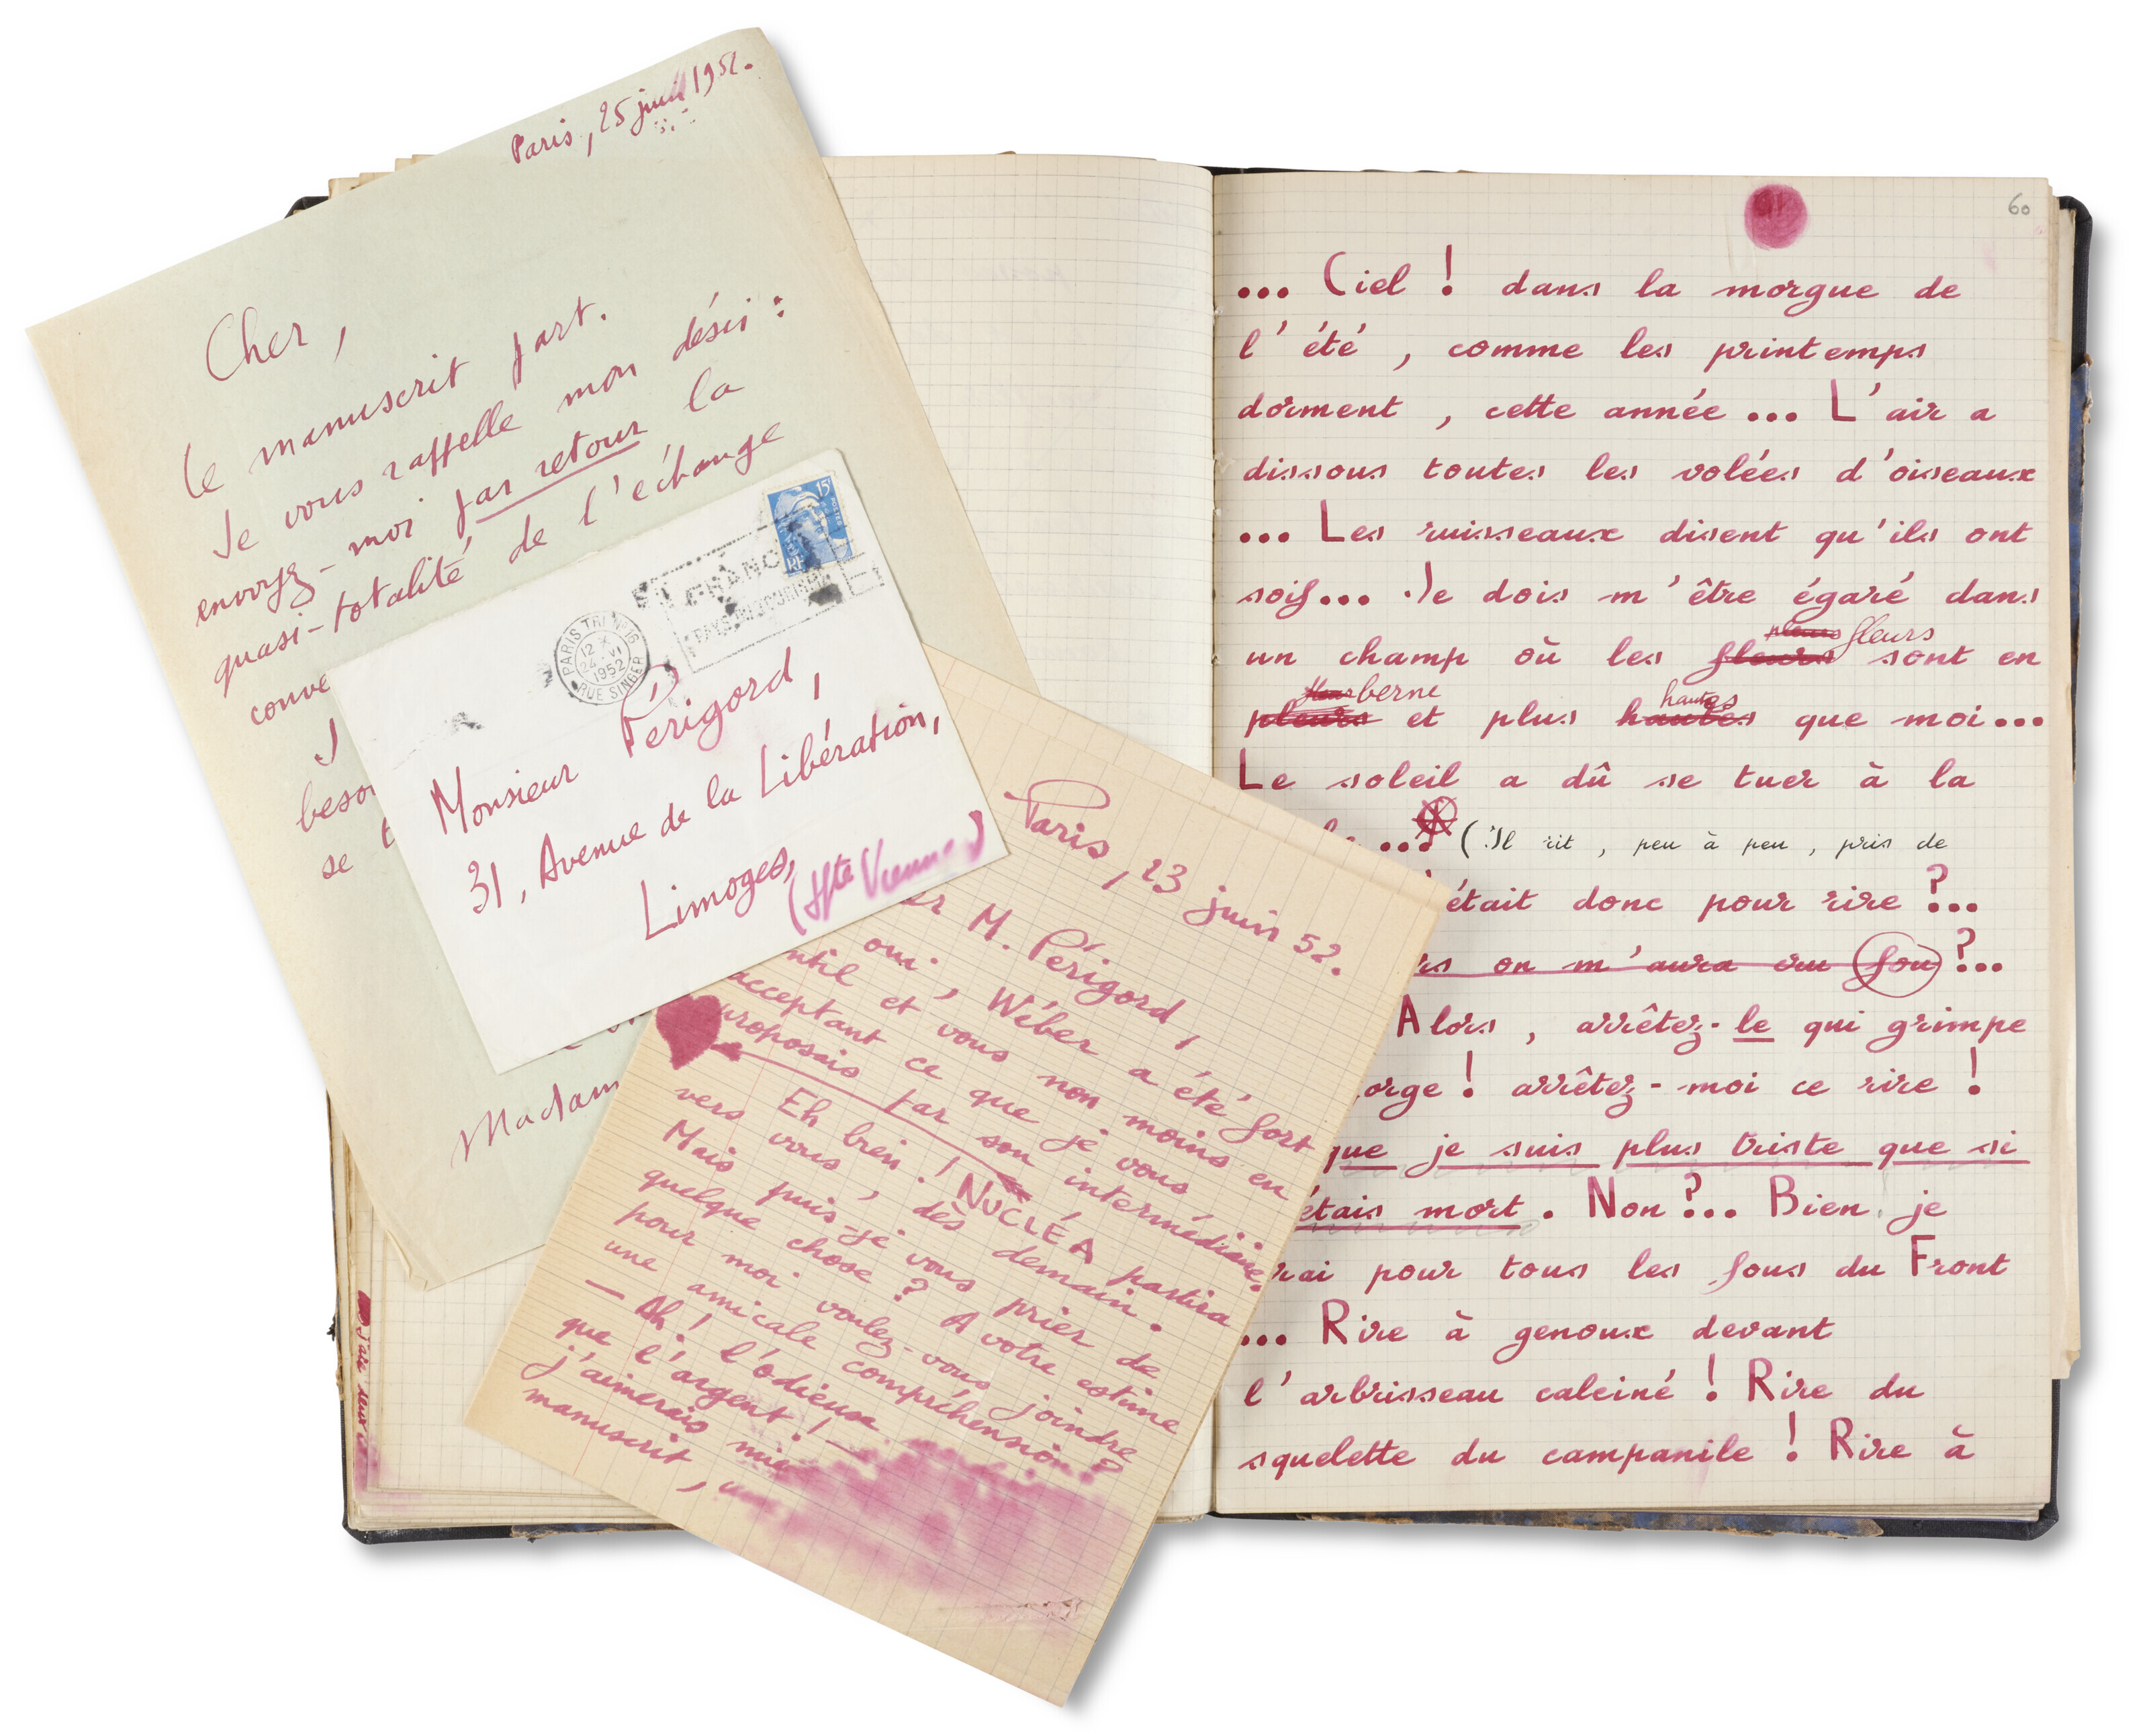 Paris, 25 juin 1952.
Cher,
Le manuscrit part.
Je vous rappelle mon désir :
envoyez-moi par retour la
quasi-totalité de l'échange
conve
J
beso
se t
Madam
15F
RF
PARIS TRI N°16
12 H
24 - VI
1952
RUE SINGER
FRANCE
Monsieur Périgord,
31, Avenue de la Libération,
Limoges,
(Hte Vienne)
Paris, 23 juin 52.
er M. Périgord,
oui, Wéber a été fort
ntil et vous non moins en
acceptant ce que je vous
proposais par son intermédiaire.
Eh bien ! NUCLÉA partira
vers vous, dès demain.
Mais puis-je vous prier de
quelque chose ? A votre estime
pour moi voulez-vous joindre
une amicale compréhension ?
— Ah ! l'odieux
que l'argent ! —
j'aimerais mie
manuscrit,
60
... Ciel ! dans la morgue de
l'été, comme les printemps
dorment, cette année ... L'air a
dissous toutes les volées d'oiseaux
... Les ruisseaux disent qu'ils ont
soif... Je dois m'être égaré dans
pleurs fleurs
un champ où les fleurs sont en
berne hautes
pleurs et plus hautes que moi...
Le soleil a dû se tuer à la
... (Il rit, peu à peu, pris de
était donc pour rire ?...
rs on m'aura cru fou ?...
Alors, arrêtez-le qui grimpe
orge ! arrêtez-moi ce rire !
que je suis plus triste que si
étais mort. Non ?... Bien, je
rai pour tous les fous du Front
... Rire à genoux devant
l'arbrisseau calciné ! Rire du
squelette du campanile ! Rire à